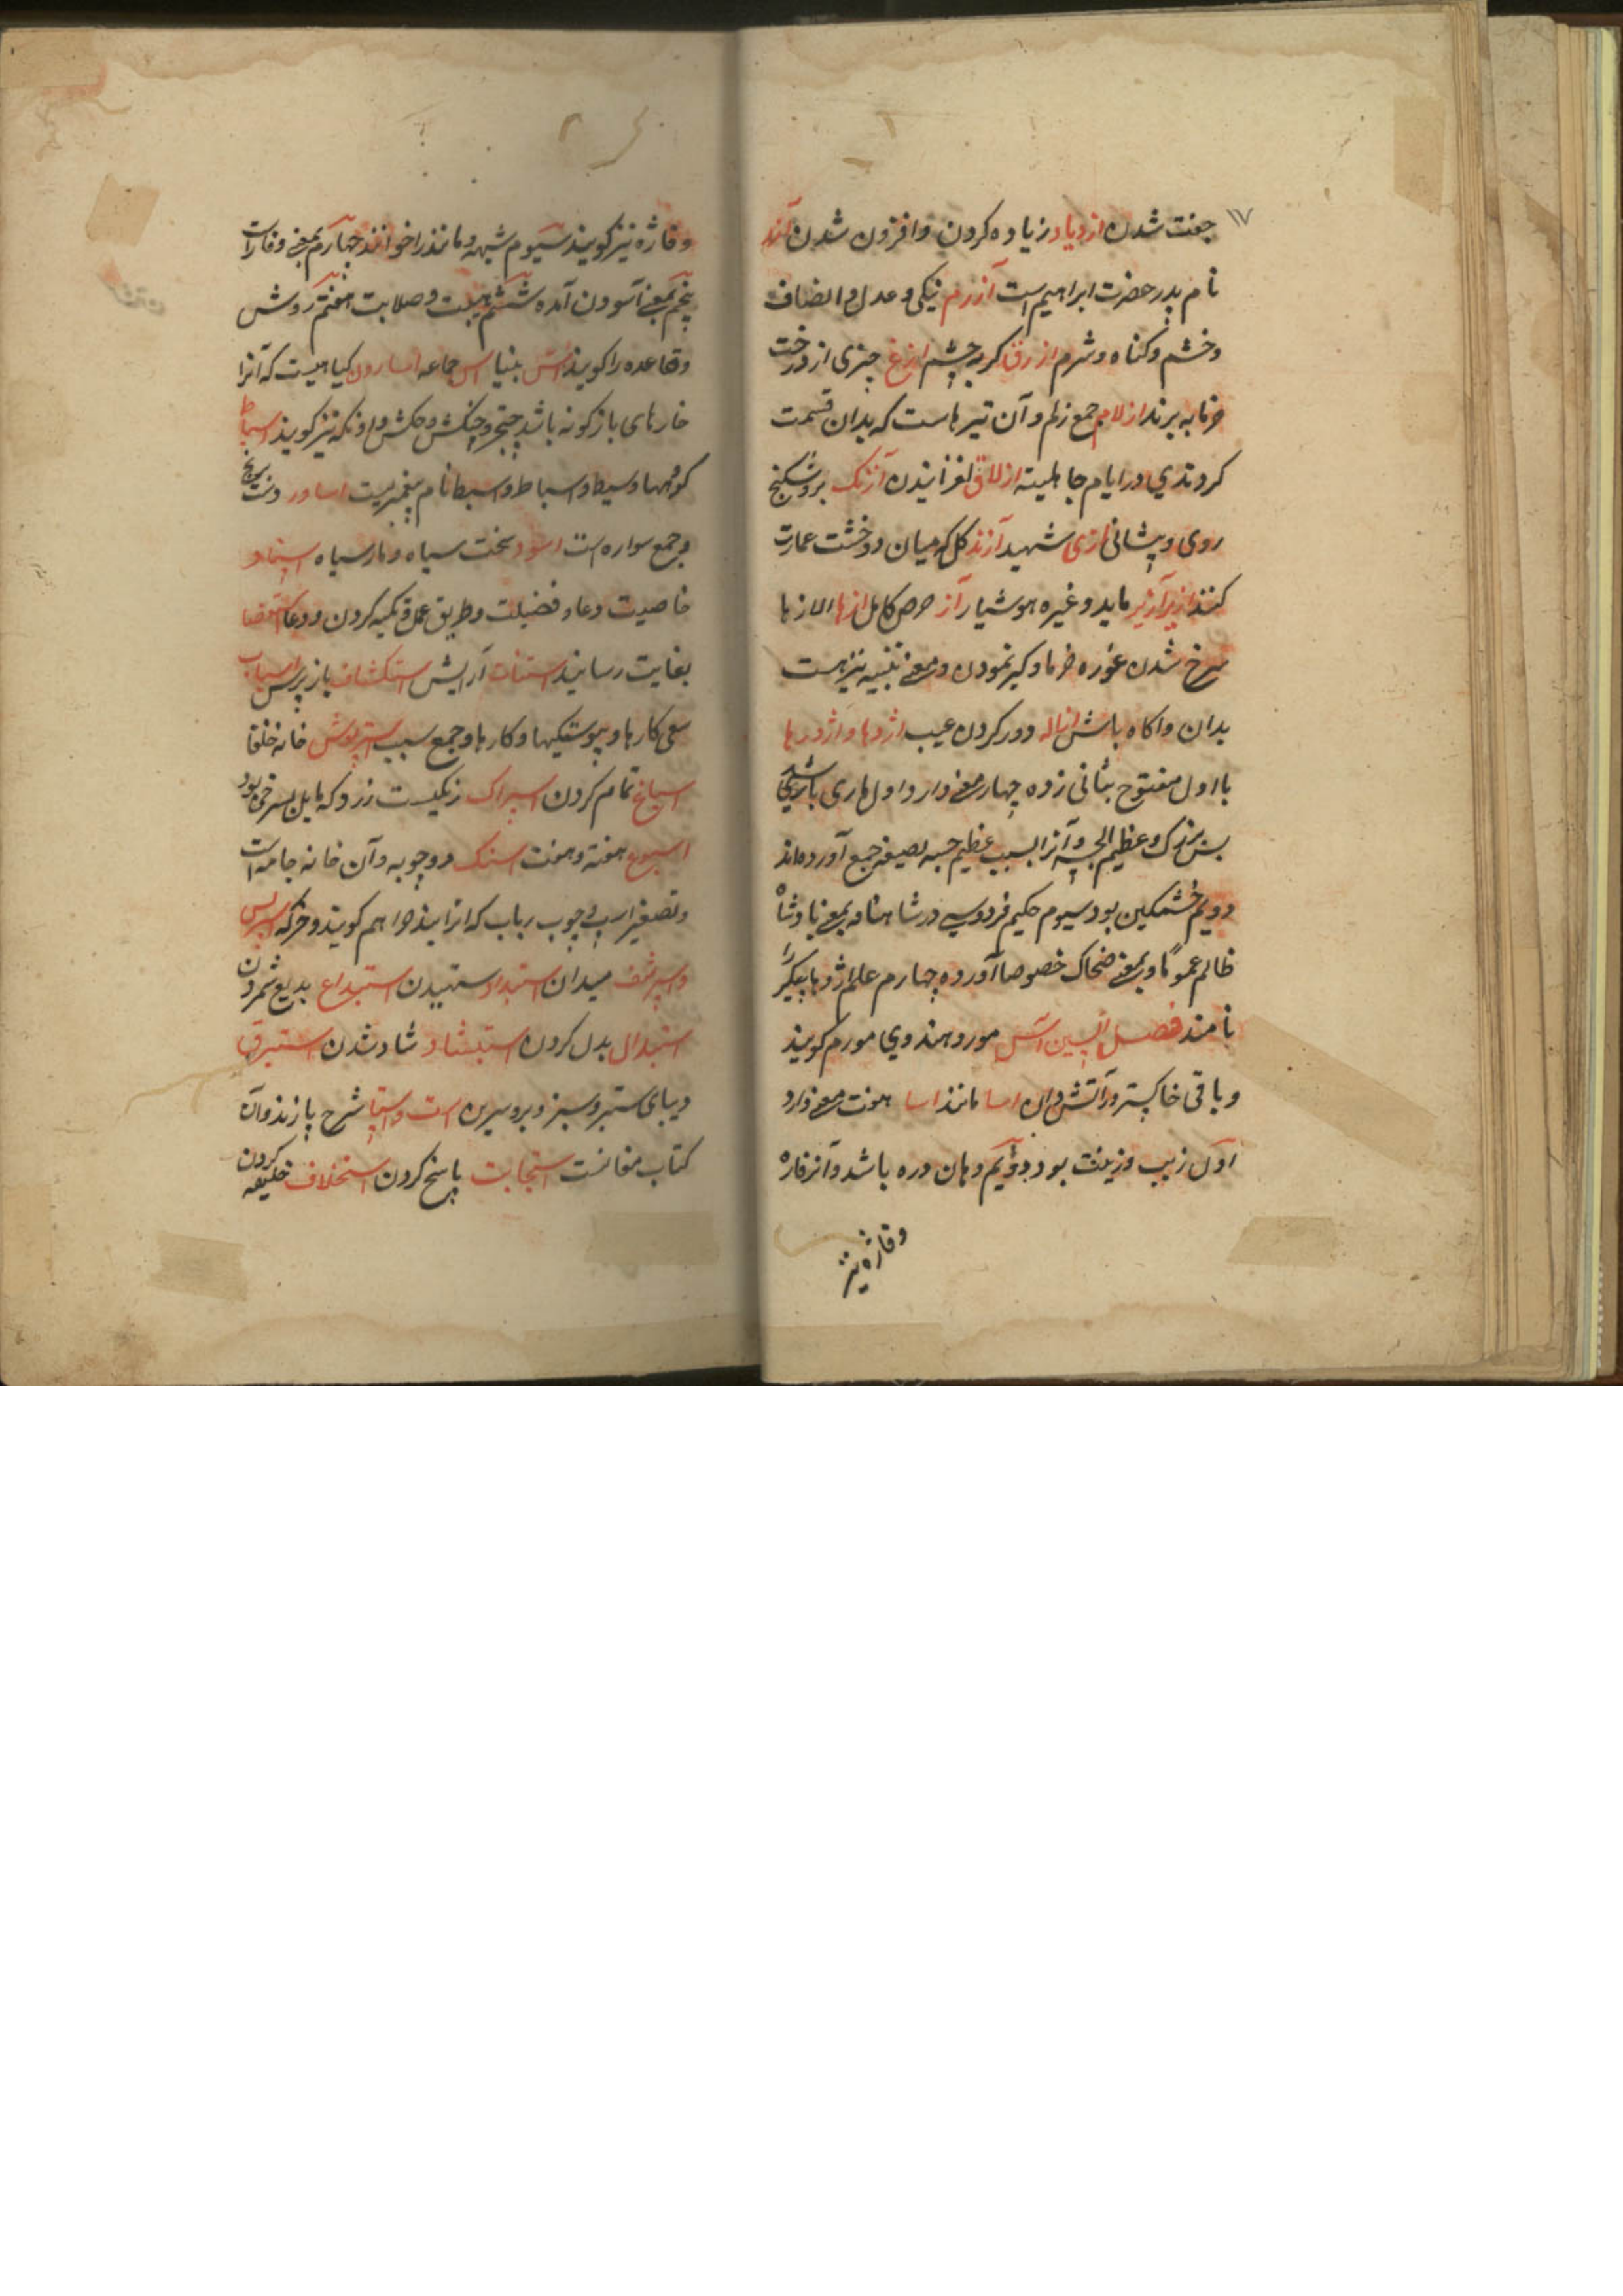 ۱۷
جفت شدن ازدیاد زیاده کردن و افزون شدن آزر
نام پدر حضرت ابراهیم است آزرم نیکی و عدل و انصاف
و خشم و کناه و شرم ازرق کربه چشم ازغ چیزی از درخت
خرما به برند ازلام جمع زلم و آن تیرهاست که بدان قسمت
کردندی در ایام جاهلیت ازلاق لغزانیدن آژنک بروشکنج
روی و پیشانی ازی شهید آژند کل که میان دو خشت عمارت
کنند ازیر آژیر ماید و غیره هوشیار آز حرص کامل ازها الازها
سرخ شدن غوره خرما و کیر نمودن و معنی تنبیه نیز هست
بدان و اکاه باش ازاله دور کردن عیب اژدها و اژدرها
با اول مفتوح بثانی زده چهار معنی دارد اول ماری باشد
بس بزرک و عظیم الجثه و آنرا بسبب عظیم جسه بصیغه جمع آورده‌اند
دویم خشمکین بود سیوم حکیم فردوسی در شاهنامه بمعنی پادشاه
ظالم عموماً و بمعنی ضحاک خصوصا آورده چهارم علم اژدها پیکر را
نامند فصل السین آس مورد و هندوی مورم کویند
و باقی خاکستر و آتش دان اسا مانند اسا هفت معنی دارد
اول زیب و زینت بود دویم دهان دره باشد و آنرا فاژه
و فاژه نیز
و فاژه نیز کویند سیوم شبهه و مانند را خوانند چهارم بمعنی وقار است
پنجم بمعنی آسودن آمده ششم هیبت و صلابت هفتم روش
و قاعده را کویند اس بنیاد اس جماعه اسارون کیاهیست که آنرا
خارهای بازکونه باشد و چکش و اونکه نیز کویند اسباط
کروهها و سبط و اسباط و اسبط نام پیغمبریست اساور دست برنج
و جمع سواره است اسود سخت سیاه و مار سیاه اسپناد
خاصیت دعا و فضیلت و طریق عمل و تکیه کردن و دعا استقصا
بغایت رسانید استنان آرایش استکشاف باز پرس اسباب
سعی کارها و پیوستکیها و کارها و جمع سبب استرپوش خانه خلفا
اسباغ تمام کردن اسپرک رنکیست زرد که مایل بسرخی بود
اسبوع هفته و هفت استنک دوچوبه و آن خانه جامه است
و تصغیر اسپ و چوب رباب که انرا بندخرا هم کویند و خرکه اسپریس
و اسپرشف میدان استبداد ستهیدن استبداع بدیع شمردن
استبدال بدل کردن استبشاد شاد شدن استبرق
دیبای ستبر و سبز و برو سیرین است و استپا شرح پازند و آن
کتاب مغانست استجابت پاسخ کردن استخلاف خلیفه کردن